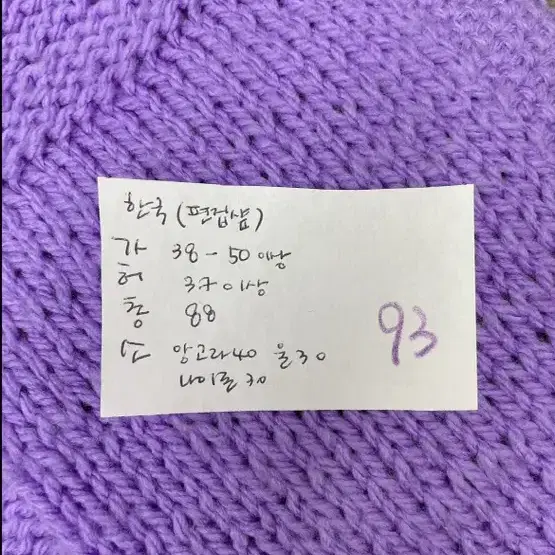 한국 (편집샵)
가 38 - 50 이상
허 37 이상
총 88
소 앙고라40 울30
나이론30
93